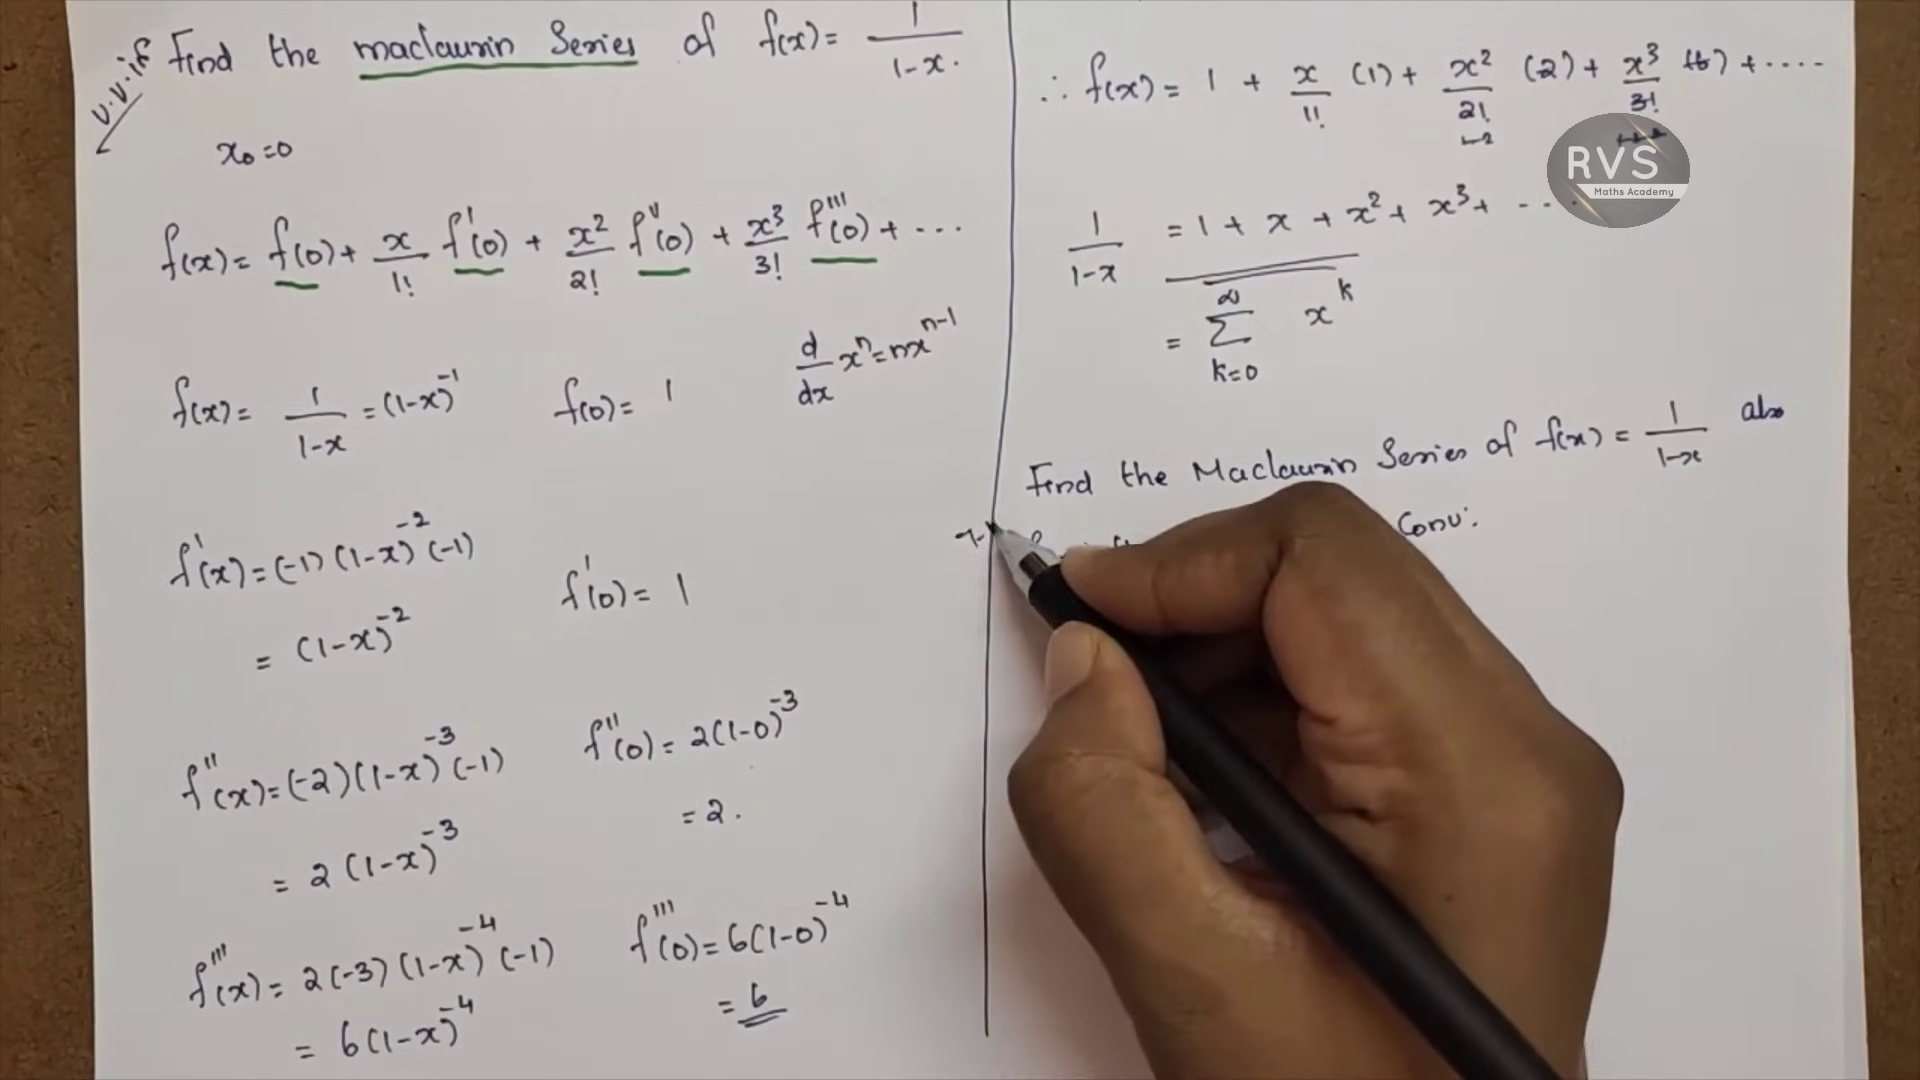 v.v.if Find the maclaurin Series of f(x) = 1/1-x.
x₀=0
f(x) = f(0) + x/1! f'(0) + x²/2! f''(0) + x³/3! f'''(0) + ...
f(x) = 1/1-x = (1-x)⁻¹ f(0) = 1 d/dx xⁿ = nxⁿ⁻¹
f'(x) = (-1)(1-x)⁻²(-1)
= (1-x)⁻² f'(0) = 1
f''(x) = (-2)(1-x)⁻³(-1) f''(0) = 2(1-0)⁻³
= 2(1-x)⁻³ = 2.
f'''(x) = 2(-3)(1-x)⁻⁴(-1) f'''(0) = 6(1-0)⁻⁴
= 6(1-x)⁻⁴ = 6
∴ f(x) = 1 + x/1! (1) + x²/2! (2) + x³/3! (6) + ....
RVS
Maths Academy
1/1-x = 1 + x + x² + x³ + ...
= ∞ Σ k=0 xᵏ
Find the Maclaurin Series of f(x) = 1/1-x also
Conv: